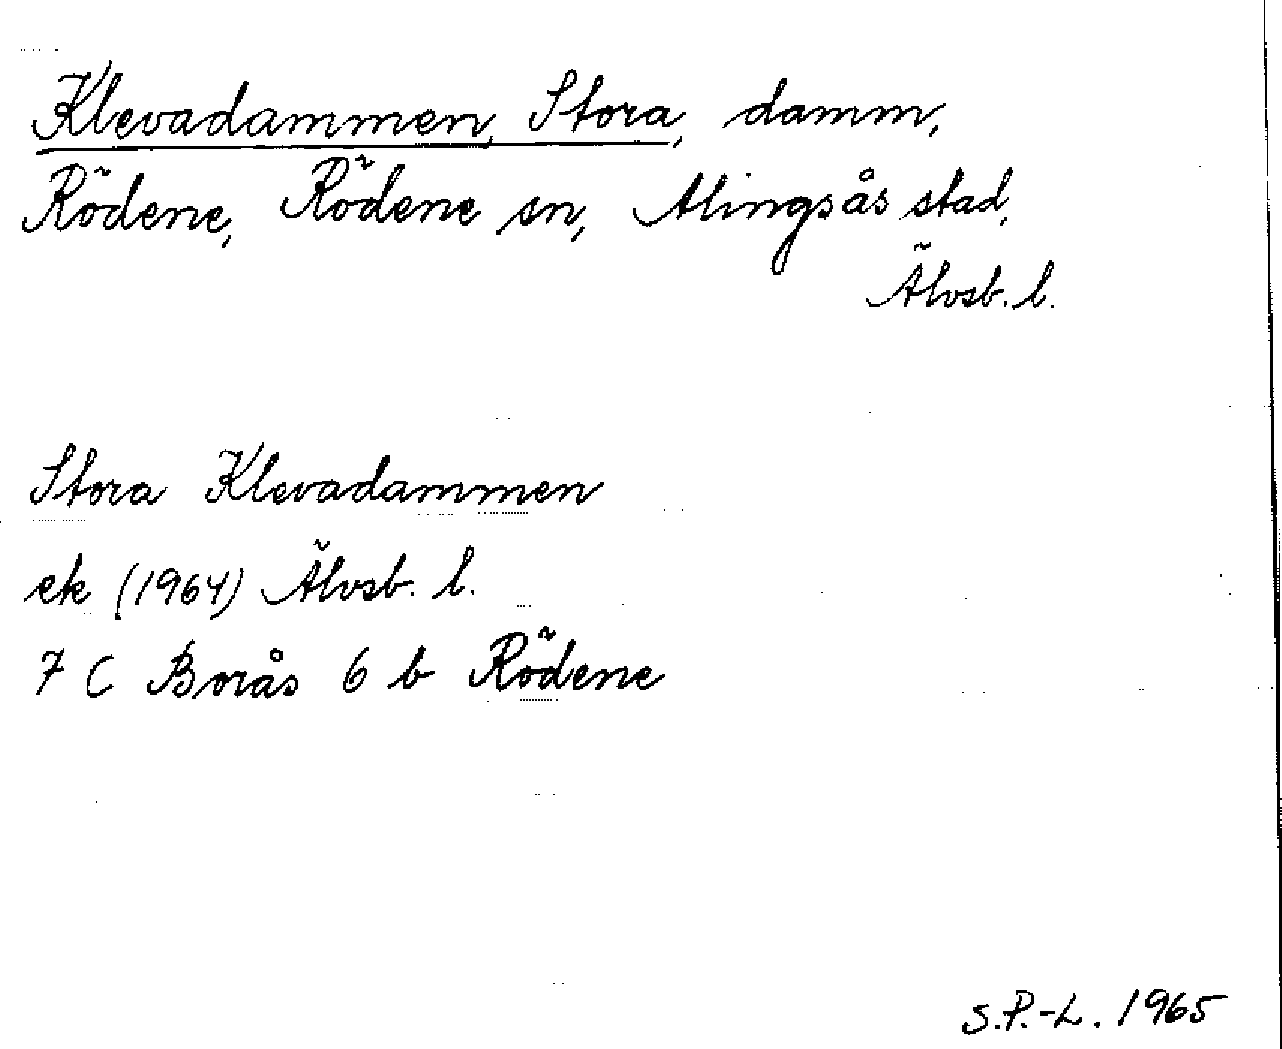 Klevadammen, Stora, damm,
Rödene, Rödene sn, Alingsås stad,
Älvsb. l.
Stora Klevadammen
ek (1964) Älvsb. l.
7 C Borås 6 b Rödene
S.P.-L. 1965